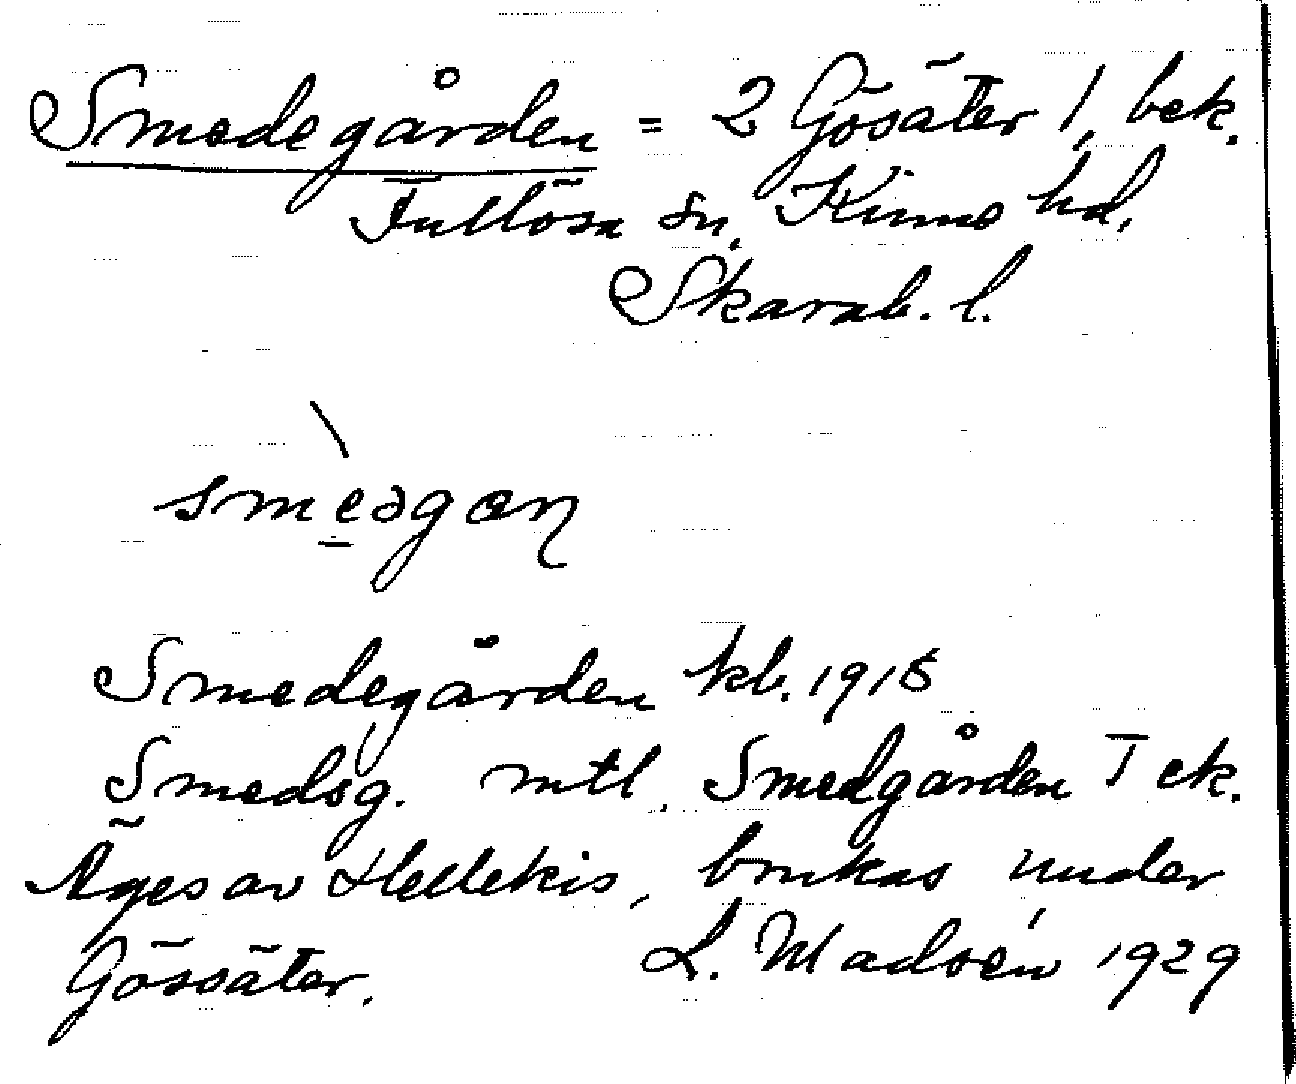 Smedegården = 2 Gösäter 1, bek.
Fullösa sn, Kinne hd,
Skarab. l.
smèəgæn
Smedegården kb. 1915
Smedsg. mtl. Smedgården T ek.
Äges av Hellekis, brukas under
Gössäter. L. Madsén 1929